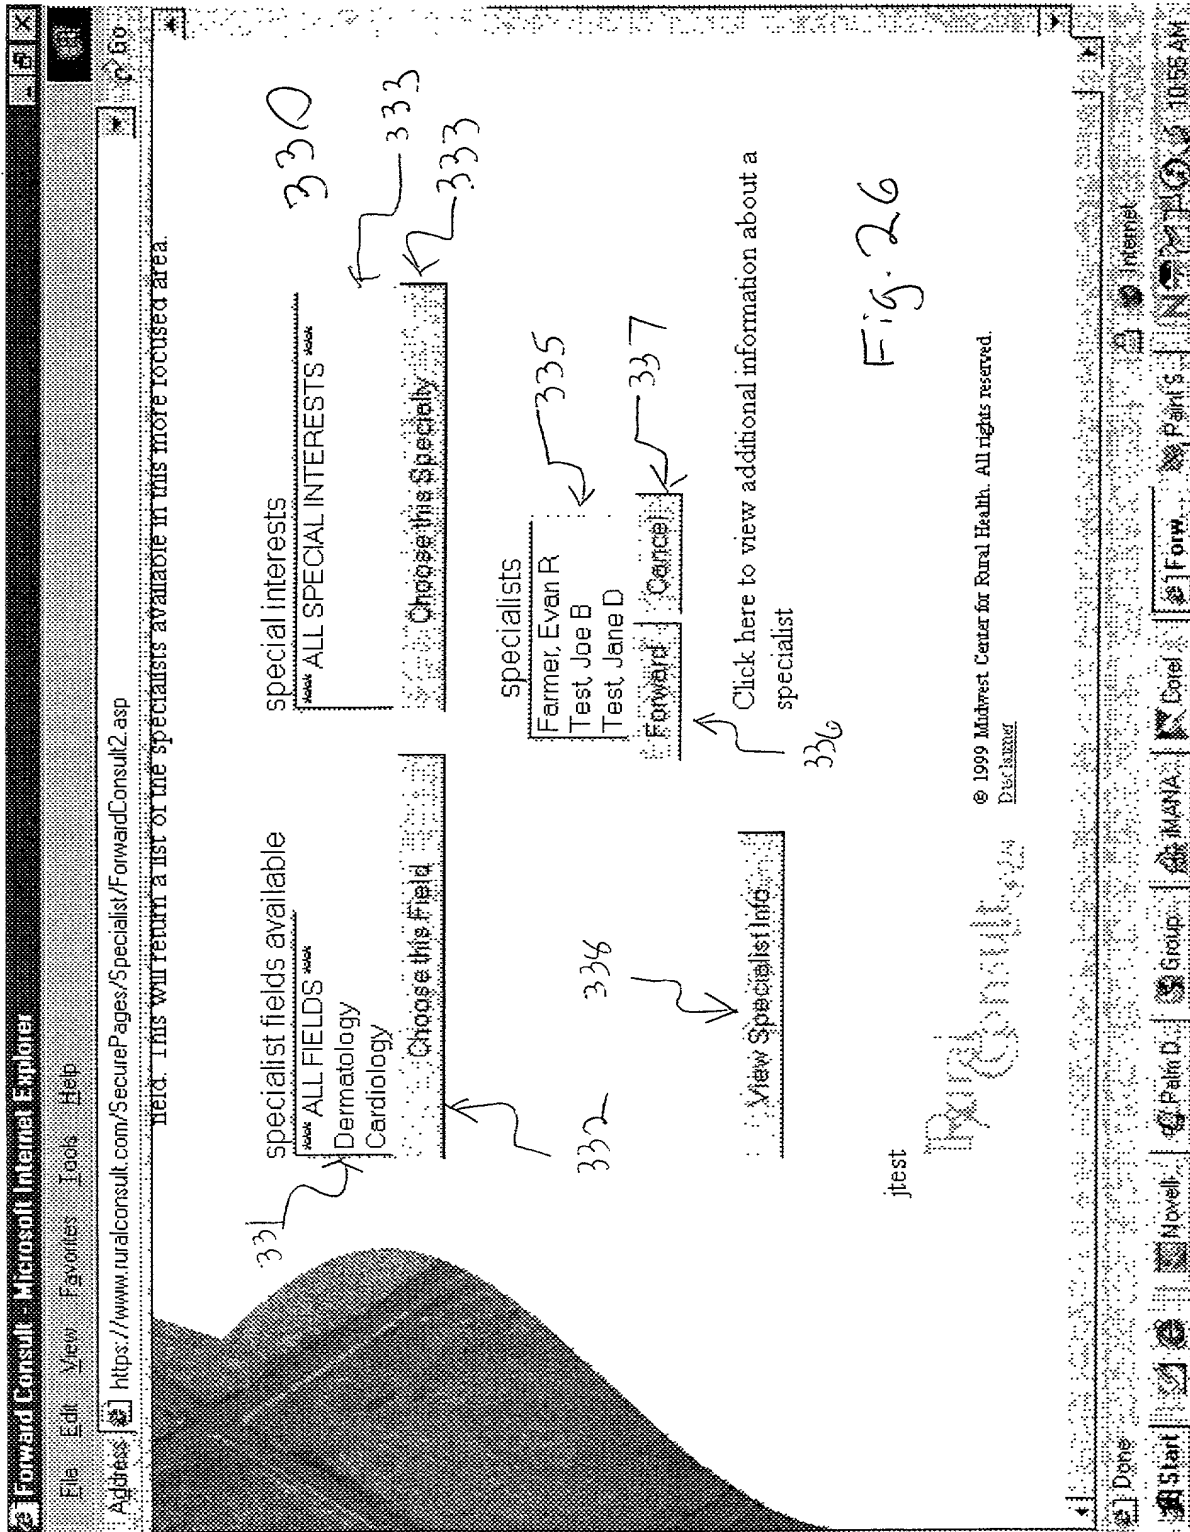 Forward Consult - Microsoft Internet Explorer
File Edit View Favorites Tools Help
Address https://www.ruralconsult.com/SecurePages/Specialist/ForwardConsult2.asp Go
field. This will return a list of the specialists available in this more focused area.
330
331
specialist fields available
*** ALL FIELDS ***
Dermatology
Cardiology
Choose this Field
332
special interests
*** ALL SPECIAL INTERESTS ***
333
Choose this Specialty
333
specialists
Farmer, Evan R
Test Joe B
Test Jane D
335
Forward Cancel
337
336
338
View Specialist Info
Click here to view additional information about a
specialist
Fig. 26
jtest
Rural
Consult
© 1999 Midwest Center for Rural Health. All rights reserved.
Disclaimer
Done Internet
Start Novell-... Palm D... Group... iMANA... Corel Forw... Paint S... 10:56 AM